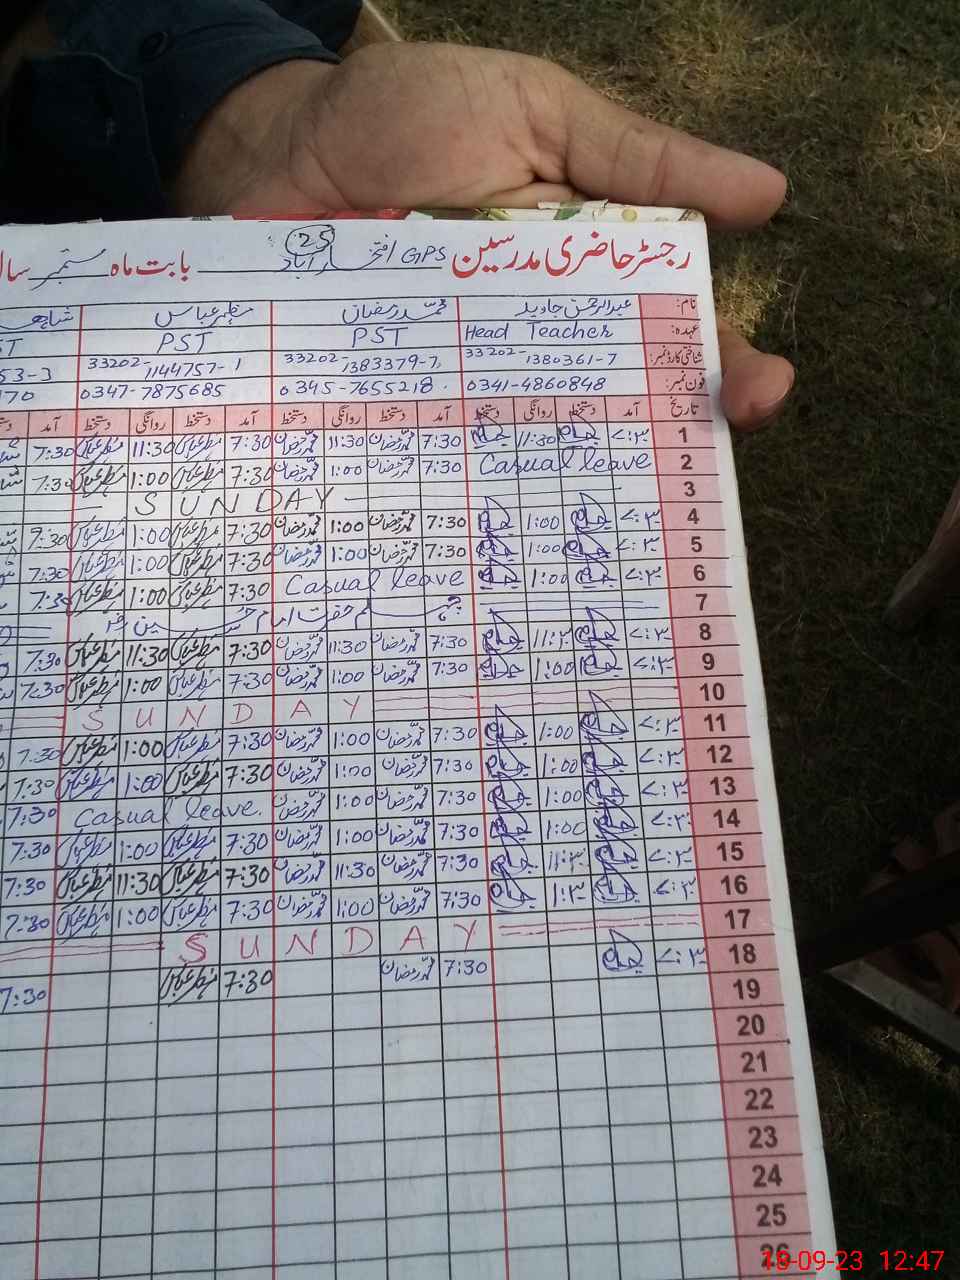 رجسٹر حاضری مدرسین GPS افتخار آباد بابت ماہ ستمبر سال
25
نام: عبدالرحمن جاوید محمد رمضان مظہر عباس
عہدہ: Head Teacher PST PST ST
شناختی کارڈ نمبر: 33202-1380361-7 33202-1383379-7 33202-1144757-1 53-3
فون نمبر: 0341-4860848 0345-7655218 0347-7875685 170
تاریخ آمد دستخط روانگی دستخط آمد دستخط روانگی دستخط آمد دستخط روانگی دستخط آمد
1 ۷:۳۰ 11:30 7:30 محمد رمضان 11:30 محمد رمضان 7:30 مظہر عباس 11:30 مظہر عباس 7:30
2 Casual leave 7:30 محمد رمضان 1:00 محمد رمضان 7:30 مظہر عباس 1:00 مظہر عباس 7:30
3 SUNDAY
4 ۷:۳۰ 1:00 7:30 محمد رمضان 1:00 محمد رمضان 7:30 مظہر عباس 1:00 مظہر عباس 7:30
5 ۷:۳۰ 1:00 7:30 محمد رمضان 1:00 محمد رمضان 7:30 مظہر عباس 1:00 مظہر عباس 7:30
6 ۷:۳۰ 1:00 Casual leave 7:30 مظہر عباس 1:00 مظہر عباس 7:30
7 چہلم حضرت امام حسین
8 ۷:۳۰ 11:30 7:30 محمد رمضان 11:30 محمد رمضان 7:30 مظہر عباس 11:30 مظہر عباس 7:30
9 ۷:۳۰ 1:00 7:30 محمد رمضان 1:00 محمد رمضان 7:30 مظہر عباس 1:00 مظہر عباس 7:30
10 SUNDAY
11 ۷:۳۰ 1:00 7:30 محمد رمضان 1:00 محمد رمضان 7:30 مظہر عباس 1:00 مظہر عباس 7:30
12 ۷:۳۰ 1:00 7:30 محمد رمضان 1:00 محمد رمضان 7:30 مظہر عباس 1:00 مظہر عباس 7:30
13 ۷:۳۰ 1:00 7:30 محمد رمضان 1:00 محمد رمضان Casual leave. 7:30
14 ۷:۳۰ 1:00 7:30 محمد رمضان 1:00 محمد رمضان 7:30 مظہر عباس 1:00 مظہر عباس 7:30
15 ۷:۳۰ 11:30 7:30 محمد رمضان 11:30 محمد رمضان 7:30 مظہر عباس 11:30 مظہر عباس 7:30
16 ۷:۳۰ 7:30 محمد رمضان 1:00 محمد رمضان 7:30 مظہر عباس 1:00 مظہر عباس 7:30
17 SUNDAY
18 ۷:۳۰ 7:30 محمد رمضان 7:30 مظہر عباس 7:30
19
20
21
22
23
24
25
26
18-09-23 12:47